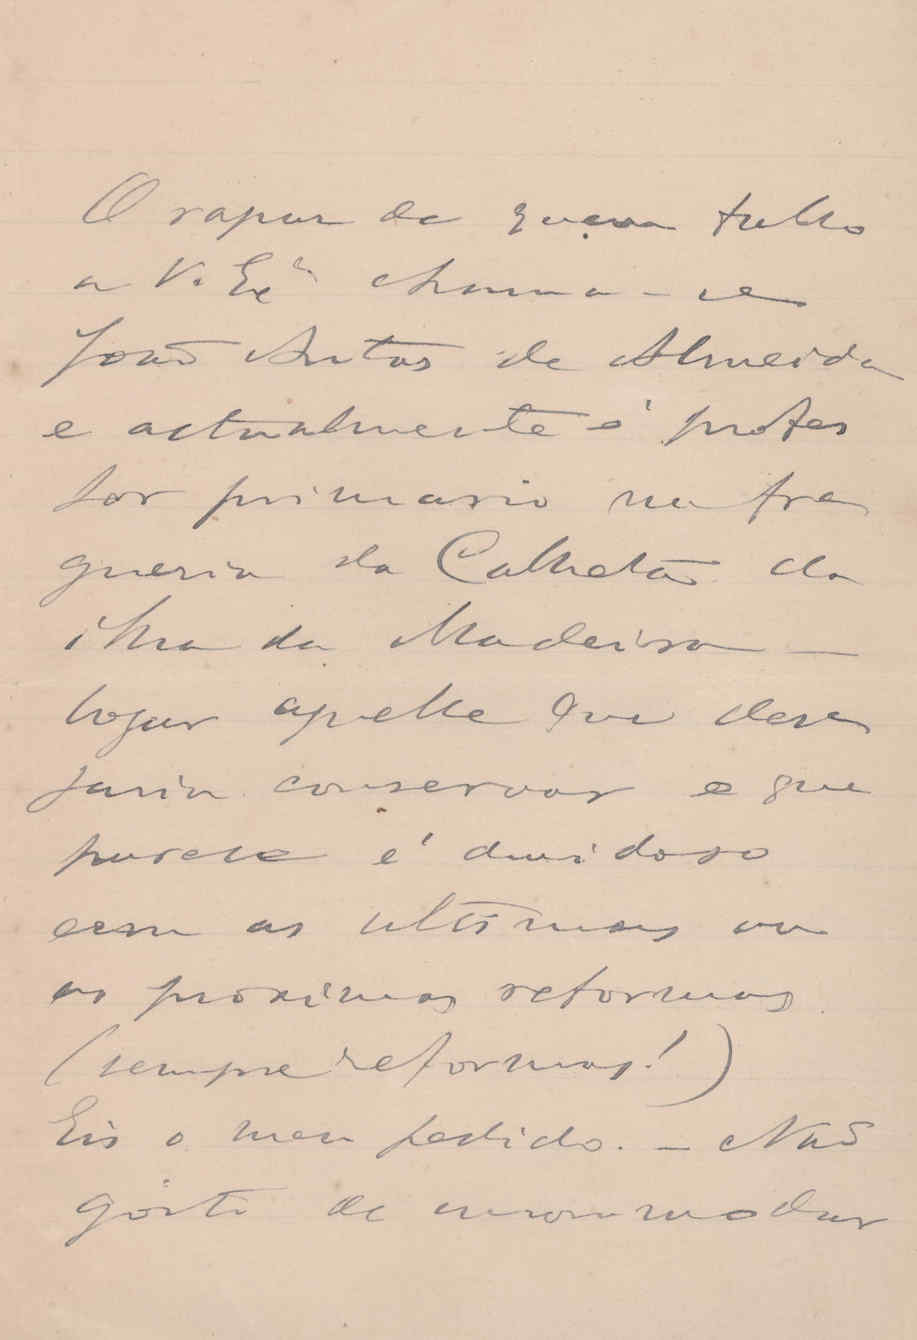 O rapaz de quem fallo
a V. Exª chama-se
João Antas de Almeida
e actualmente é profes
sor primario na fre
guezia da Calheta da
ilha da Madeira —
logar aquelle que dese
jaria conservar e que
parece é duvidoso
com as ultimas ou
as proximas reformas
(sempre reformas!)
Eis o meu pedido. — Não
gosto de incommodar